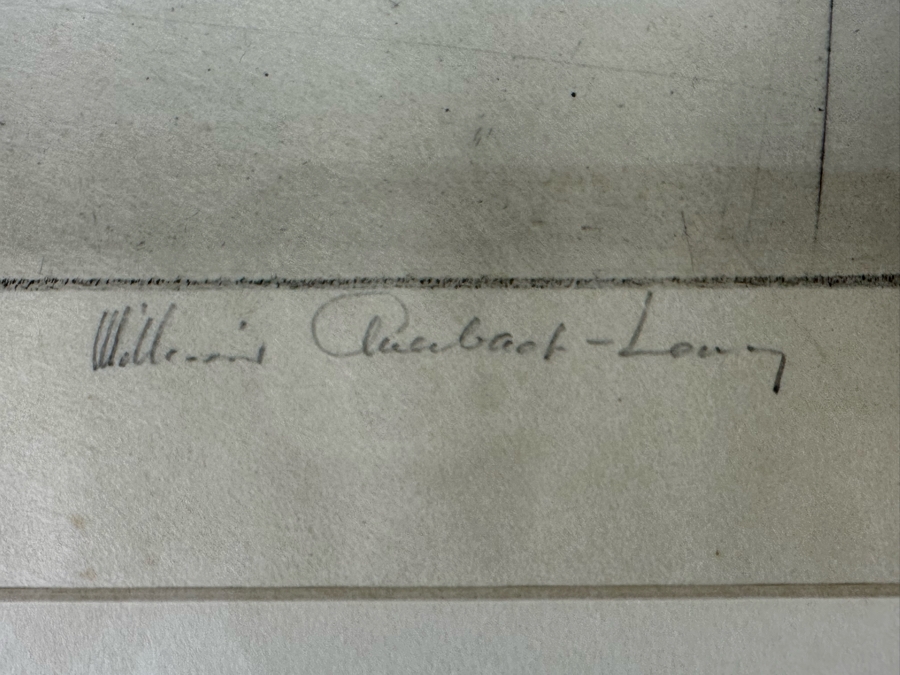 William Auerbach-Levy